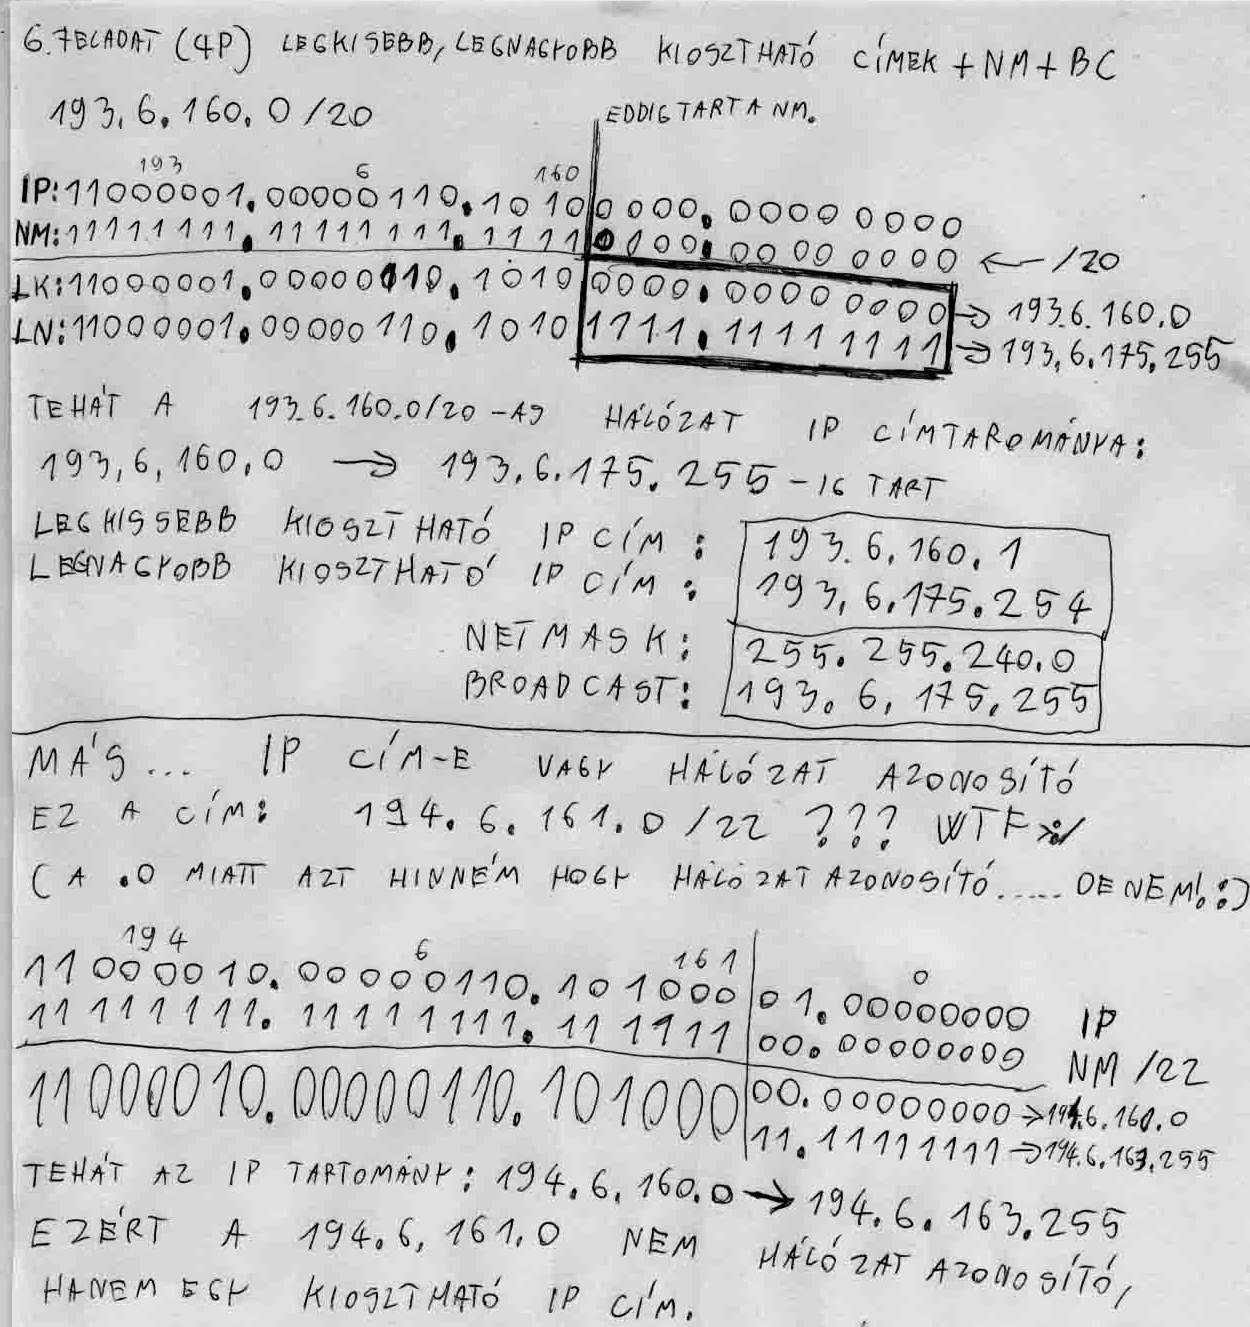 6. FELADAT (4P) LEGKISEBB, LEGNAGYOBB KIOSZTHATÓ CÍMEK + NM + BC
193.6.160.0/20
EDDIG TART A NM.
193 6 160
IP: 11000001.00000110.10100000.00000000
NM: 11111111.11111111.11110000.00000000 ← /20
LK: 11000001.00000110.10100000.00000000 → 193.6.160.0
LN: 11000001.00000110.10101111.11111111 → 193.6.175.255
TEHÁT A 193.6.160.0/20-AS HÁLÓZAT IP CÍMTAROMÁNYA:
193.6.160.0 → 193.6.175.255-IG TART
LEGKISSEBB KIOSZTHATÓ IP CÍM: 193.6.160.1
LEGNAGYOBB KIOSZTHATÓ IP CÍM: 193.6.175.254
NETMASK: 255.255.240.0
BROADCAST: 193.6.175.255
MÁS... IP CÍM-E VAGY HÁLÓZAT AZONOSÍTÓ
EZ A CÍM: 194.6.161.0/22 ??? WTF :/
(A .0 MIATT AZT HINNÉM HOGY HÁLÓZAT AZONOSÍTÓ..... DE NEM! :)
194 6 161 0
11000010.00000110.10100001.00000000 IP
11111111.11111111.11111100.00000000 NM /22
11000010.00000110.10100000.00000000 → 194.6.160.0
11.11111111 → 194.6.163.255
TEHÁT AZ IP TARTOMÁNY: 194.6.160.0 → 194.6.163.255
EZÉRT A 194.6.161.0 NEM HÁLÓZAT AZONOSÍTÓ,
HANEM EGY KIOSZTHATÓ IP CÍM.